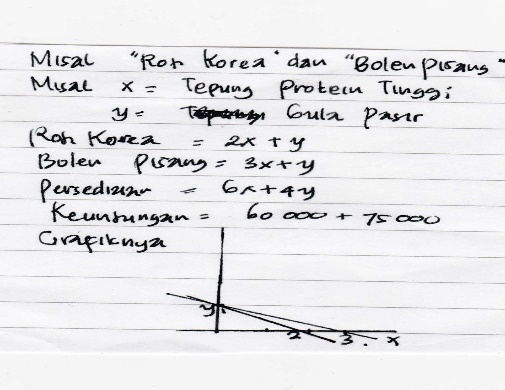 Misal "Roti Korea" dan "Bolen pisang"
Misal x = Tepung Protein Tinggi
y = Gula Pasir
Roti Korea = 2x + y
Bolen pisang = 3x + y
Persediaan = 6x + 4y
Keuntungan = 60 000 + 75 000
Grafiknya
y
2 3. x